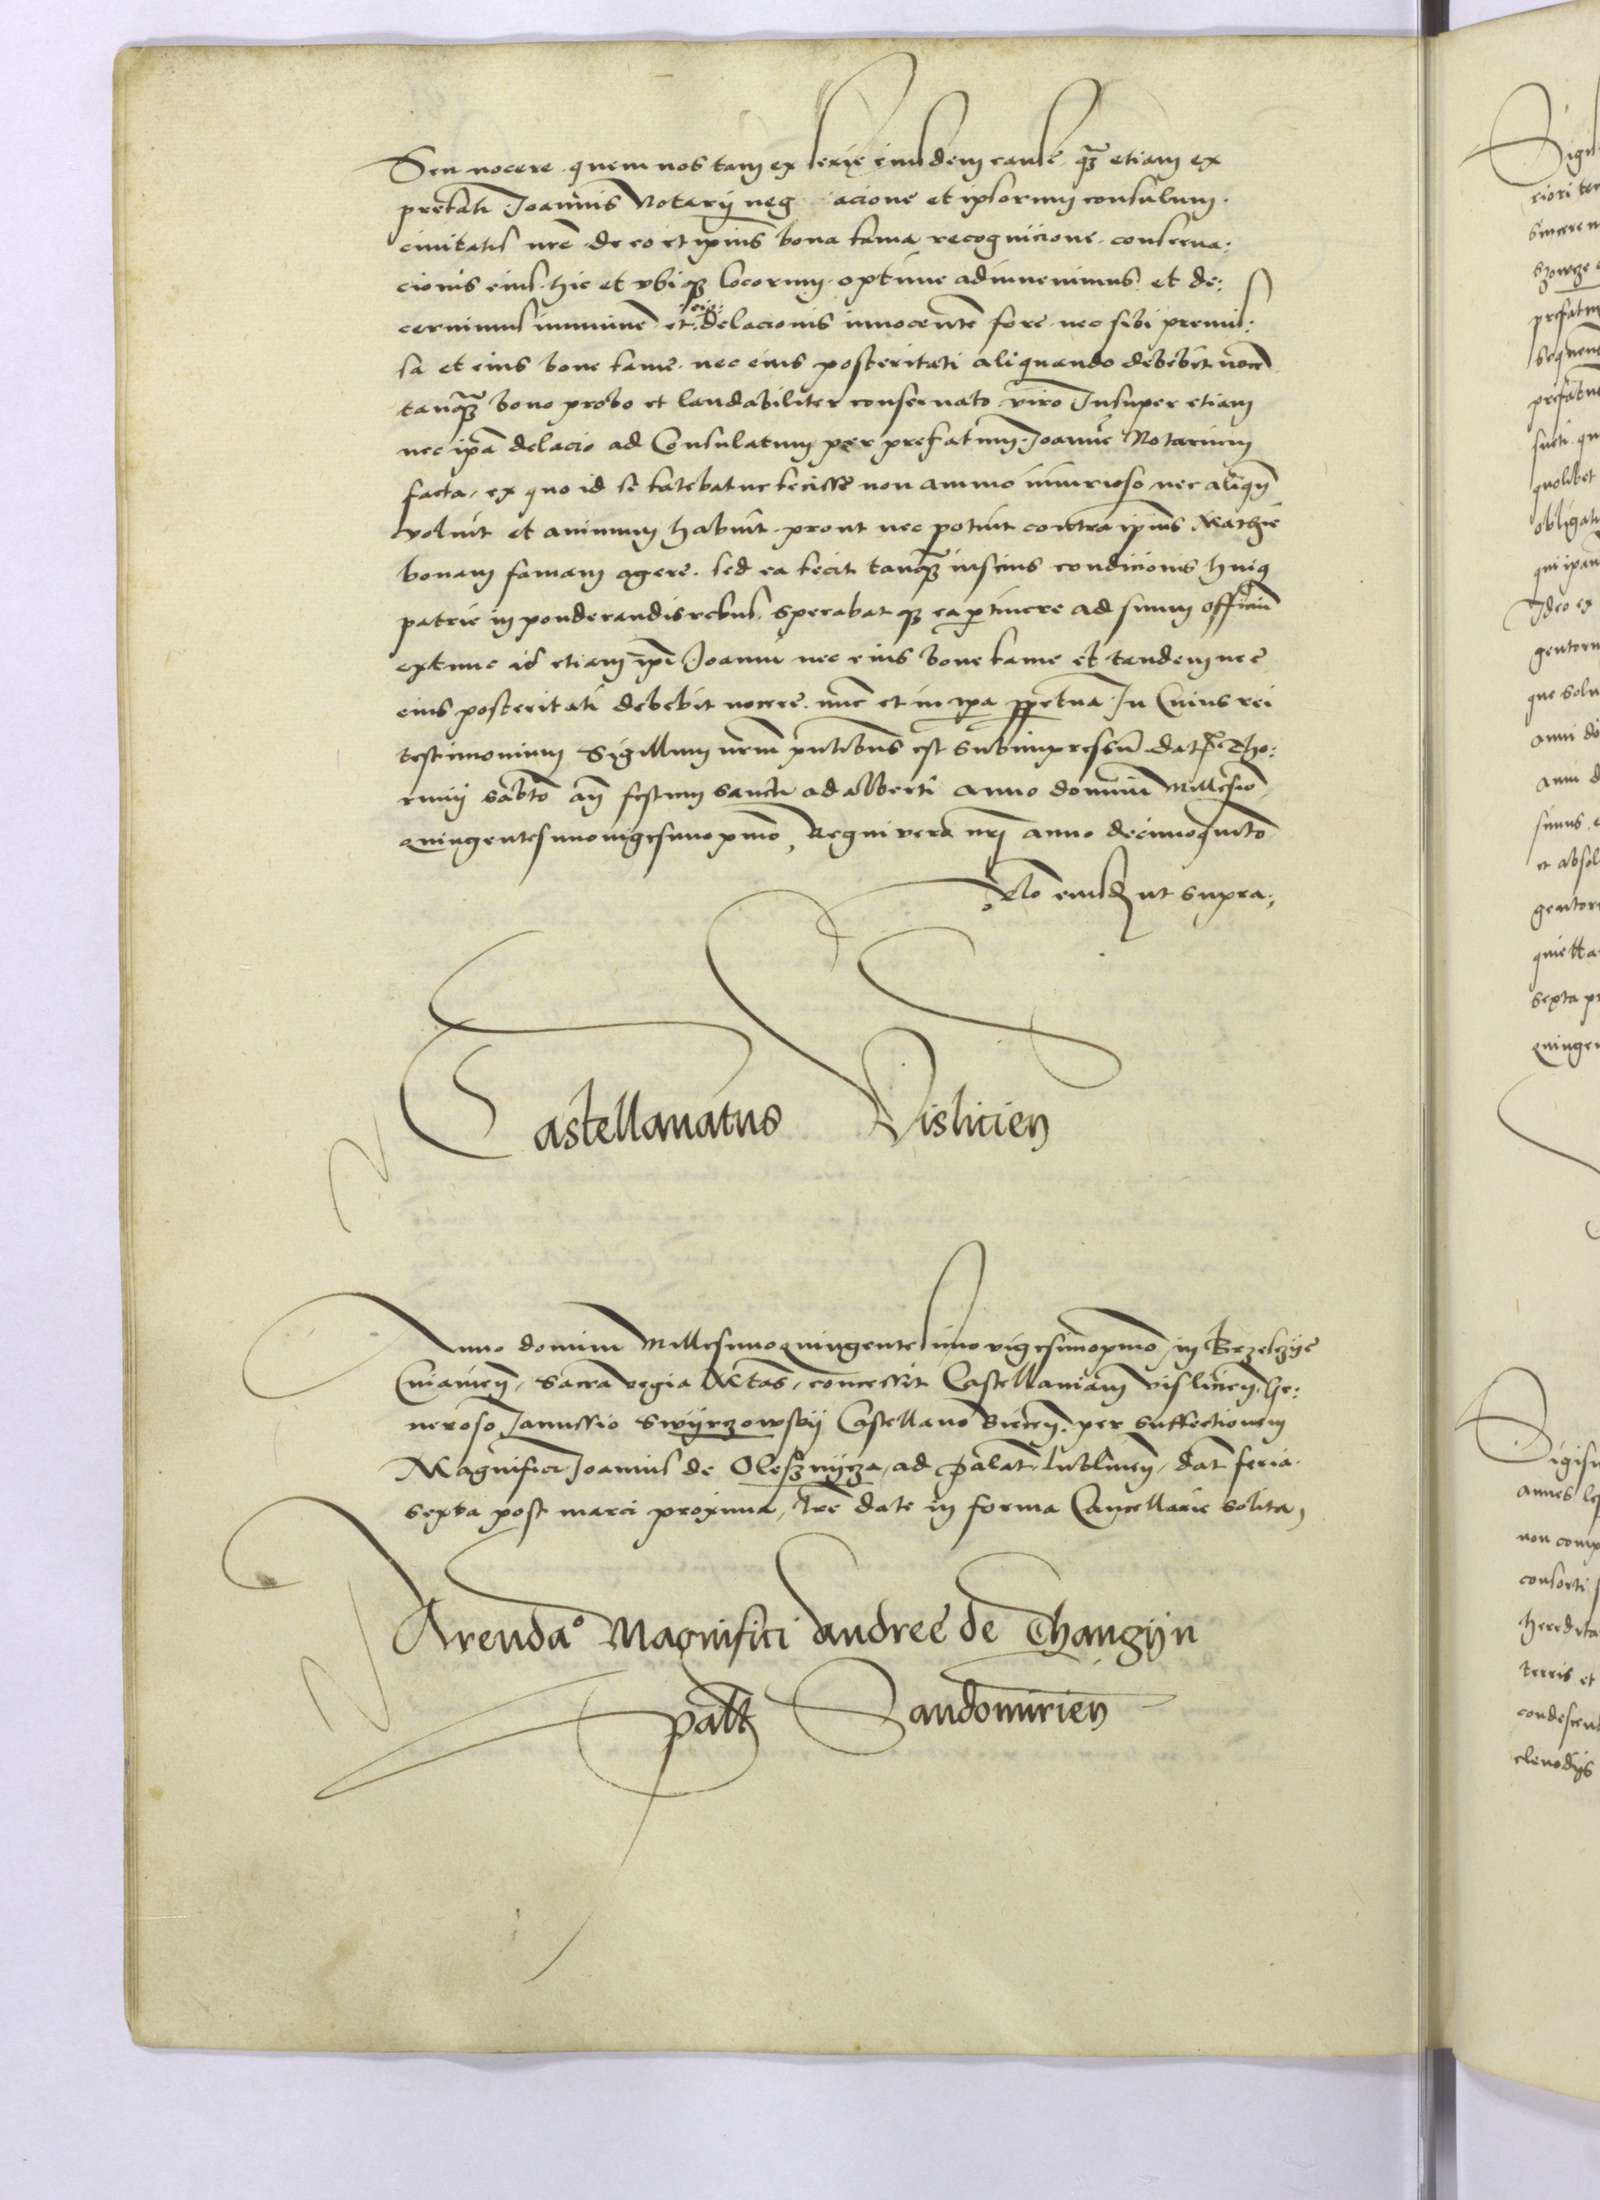 Seu nocere quem nos tam ex serie eiusdem cause qz etiam ex
prefati Joannis Notarij neg acione et ipsorum consulum
civitatis nre de eo et ipius bona fama recognicione conserva:
cionis eius hic et ubiqz locorum optime adinvenimus et de:
cernimus immune et eius delacionis innocente fore nec sibi premis:
sa et eius bone fame nec eius posteritati aliquando debebit
tanqz bono probo et laudabiliter conservato viro Insuper etiam
nec ipa delacio ad Consulatum per prefatum Joanne Notarium
facta, ex quo id se fatebatur fecisse non animo iniurioso nec
voluit et animum habuit prout nec potuit contra ipius Mathie
bonam famam agere sed ea fecit tanqz inscius condicionis huiq
patrie in ponderandis rebus sperabat qz ea ptinere ad suum officiu
extunc id etiam ipi Joanni nec eius bone fame et tandem nec
eius posteritati debebit nocere nuc et in ppetua In Cuius rei
testimonium Sigillum nrm pntibus est subimpressu dat Tho:
runij sabto an festum sancti adalberti anno domini Millesio
quingentesimovigesimopmo, Regni vero nri anno decimoquito
Rlo eiusd ut supra
Castellanatus Vislicien
Anno domini Millesimoquingentesimovigesimopmo in Brzesczye
Cuiavien, Sacra regia Mtas, concessit Castellaniam vislicien, Ge:
neroso Janussio Swyrczowsky Castellano Biecen. per suffectionem
Magnifici Joannis de Olesznycza, ad palat Lublinen, dat feria
sexta post marci proxima, lre date in forma Cancellarie solita,
Arenda° Magnifici Andree de Thangijn
palt Sandomirien